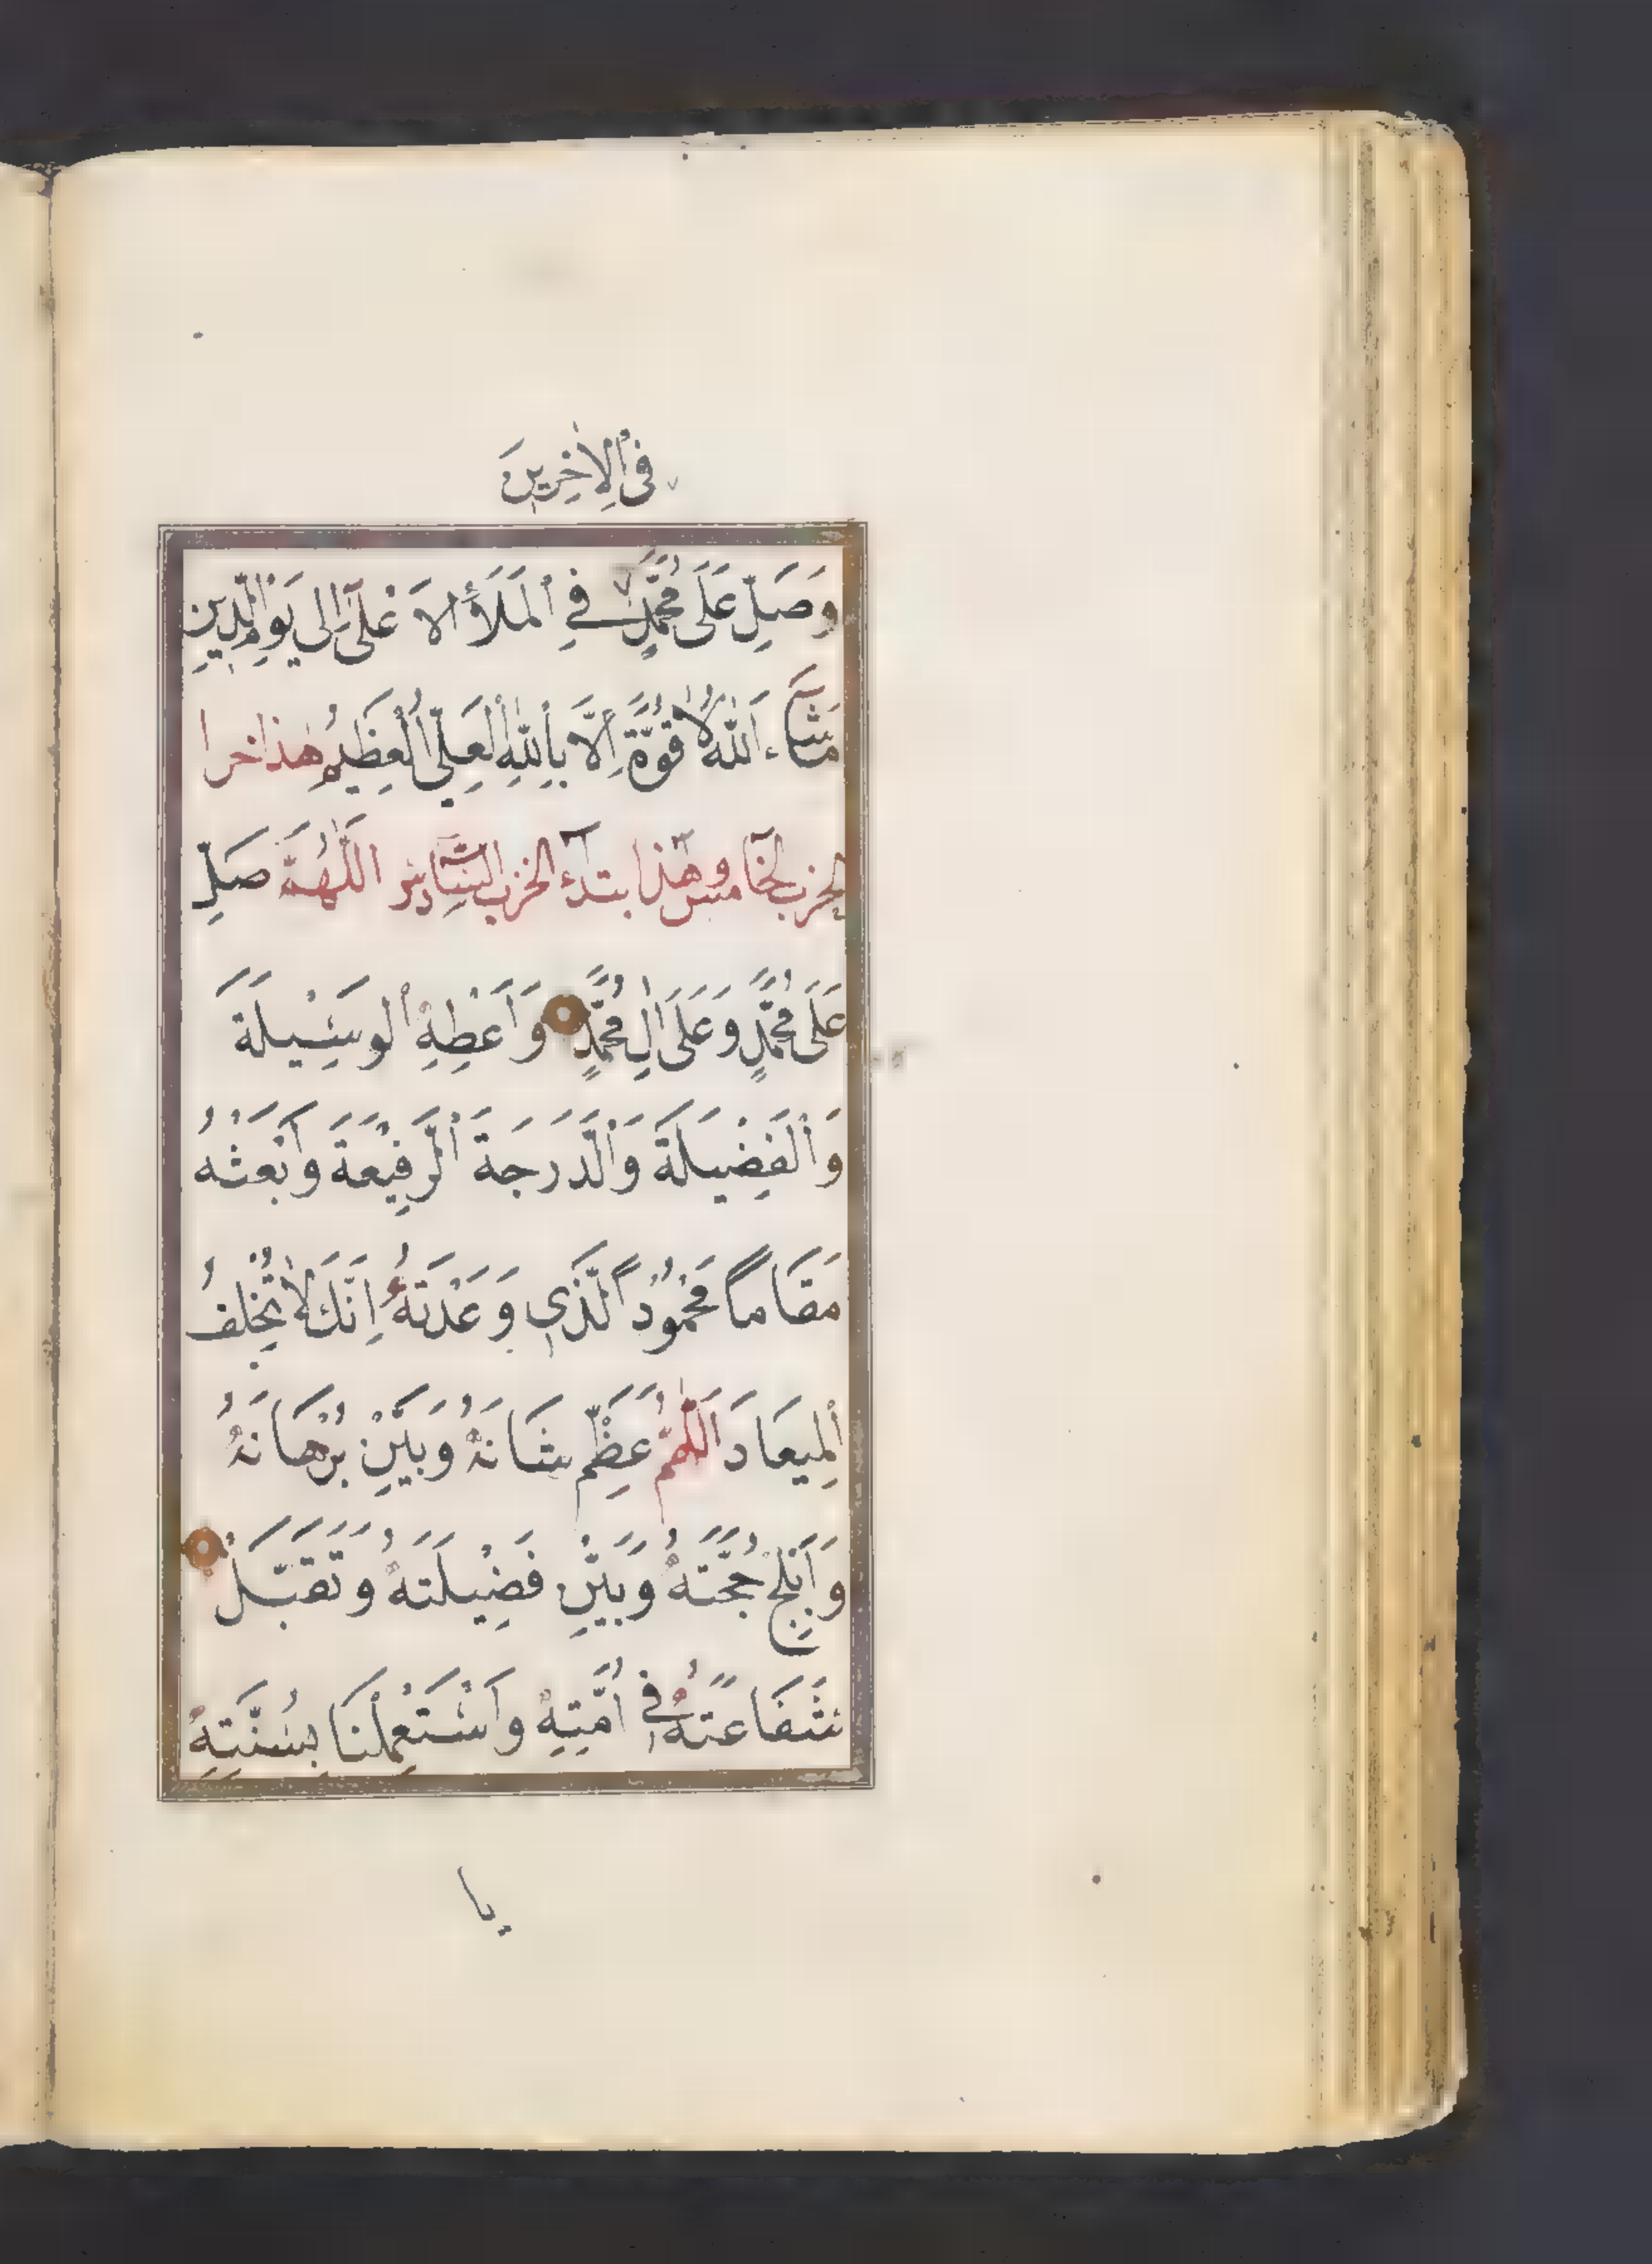 فِى اْلاٰخِرِينَ
وَصَلِّ عَلَى مُحَمَّدٍ فِي اْلمَلَأِ الاَعْلَى اِلَى يَوْمِ الدِّينِ
مَاشَآءَ اللّٰهُ لاٰ قُوَّةَ اِلَّا بِاللّٰهِ الْعَلِىِّ الْعَظِيمِ هذا خرا
لحزب الخامس وهذا بتداء الحزب السَّادِس اَللّٰهُمَّ صَلِّ
عَلَى مُحَمَّدٍ وَعَلَى اٰلِ مُحَمَّدٍ وَاَعْطِهِ اْلوَسِيْلَةَ
وَاْلفَضِيْلَةَ وَالدَّرَجَةَ الرَّفِيْعَةَ وَابْعَثْهُ
مَقَامًا مَحْمُودًا الَّذِى وَعَدْتَهُ اِنَّكَ لاٰ تُخْلِفُ
اْلمِيعَادَ اَللّٰهُمَّ عَظِّمْ شَانَهُ وَبَيِّنْ بُرْهَانَهُ
وَاَبْلِجْ حُجَّتَهُ وَبَيِّنْ فَضِيْلَتَهُ وَتَقَبَّلْ
شَفَاعَتَهُ فِى اُمَّتِهِ وَاسْتَعْمِلْنَا بِسُنَّتِهِ
يا